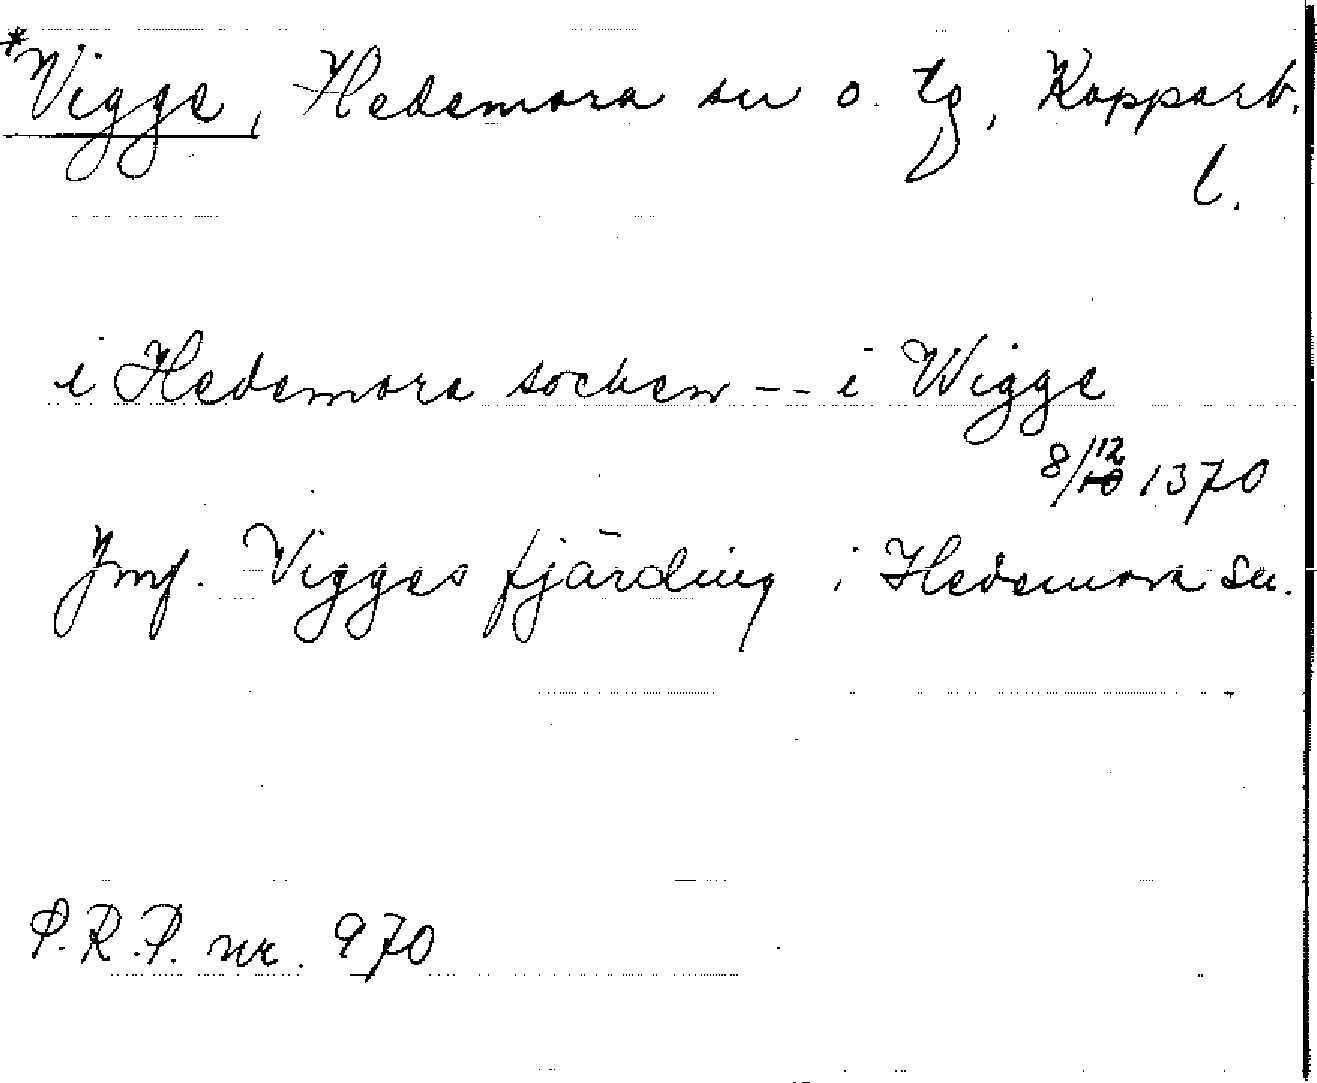 *Vigge, Hedemora sn o. tg, Kopparb.
l.
i Hedemora socken -- i Wigge
8/12 1370
Jmf. Vigges fjärding i Hedemora sn.
P.R.P. nr. 970